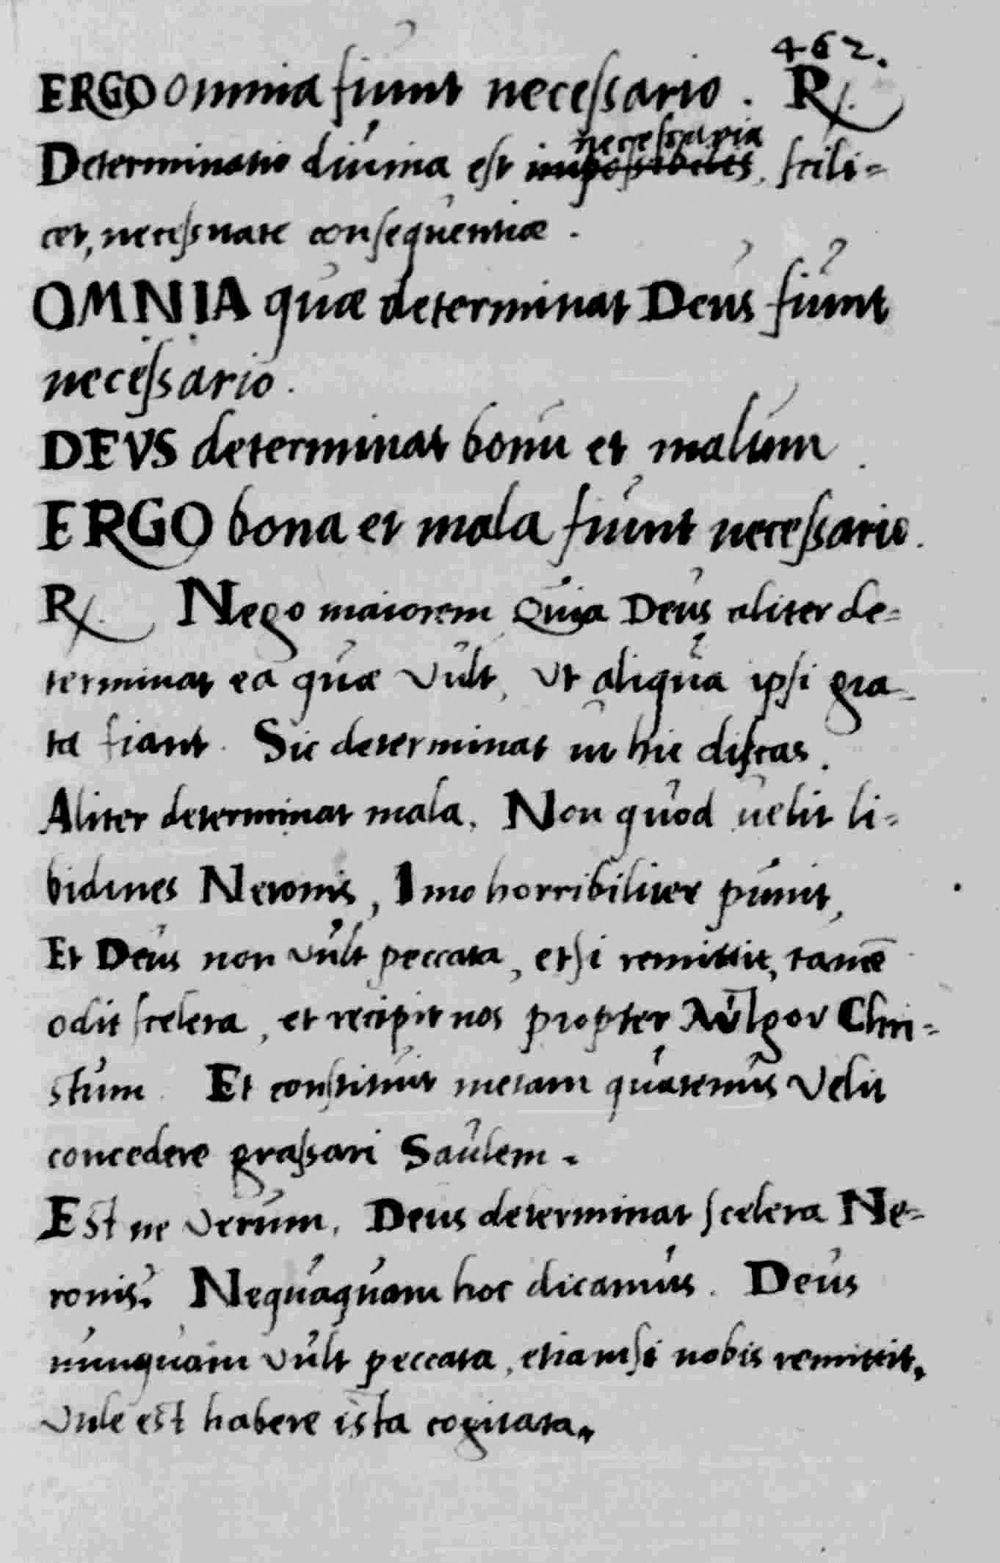 462.
ERGO omnia fiunt necessario. R/.
necessaria
Determinatio diuina est impossibiles, scili-
cet, necessitate consequentiæ.
OMNIA quæ determinat Deus fiunt
necessario.
DEVS determinat bonũ et malum.
ERGO bona et mala fiunt necessario.
R/. Nego maiorem Quia Deus aliter de-
terminat ea quæ vult, vt aliqua ipsi gra-
ta fiant. Sic determinat ut hic discas.
Aliter determinat mala. Non quod uelit li-
bidines Neronis, Imo horribiliter punit,
Et Deus non vult peccata, etsi remittit, tamẽ
odit scelera, et recipit nos propter Christum
stum. Et constituit metam quatenus velit
concedere grassari Saulem.
Est ne verum. Deus determinat scelera Ne-
ronis? Nequaquam hoc dicamus. Deus
nunquam vult peccata, etiamsi nobis remittit.
Vtile est habere ista cogitata.